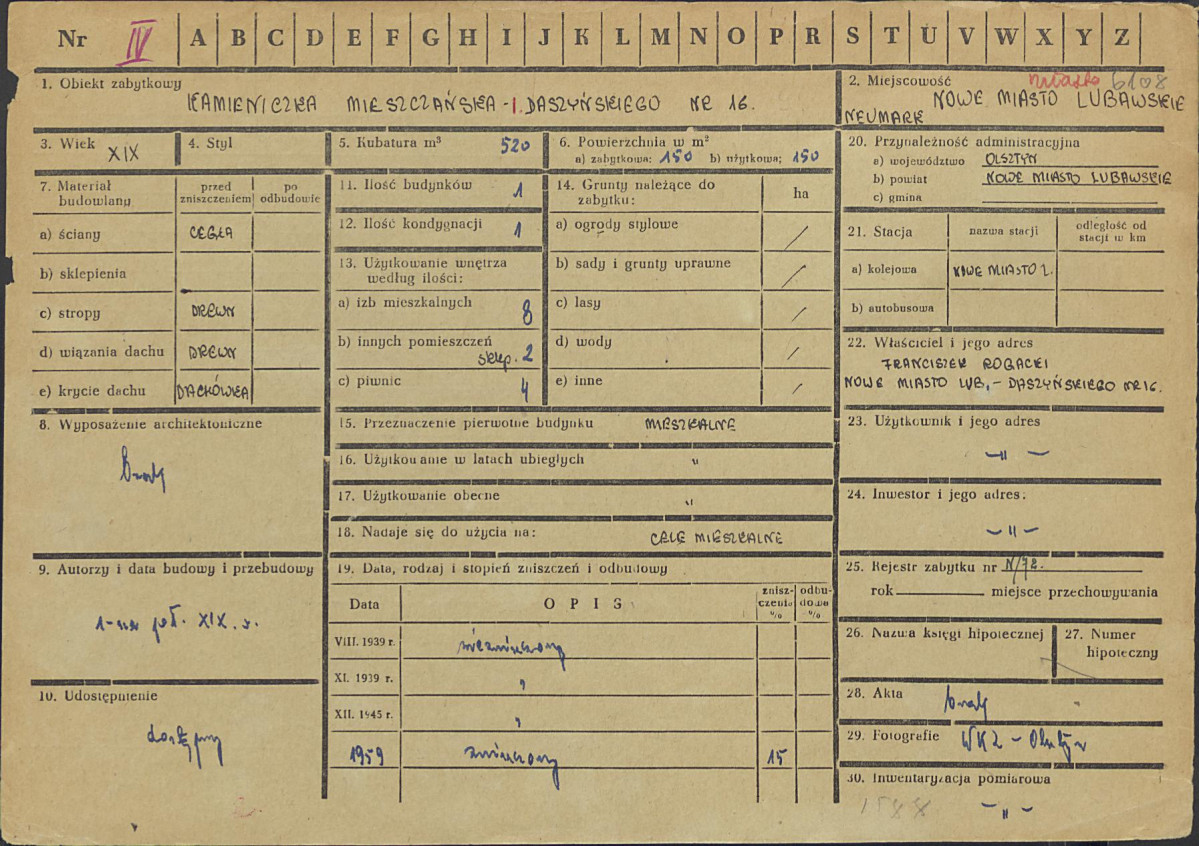 Nr IV A B C D E F G H I J K L M N O P R S T U V W X Y Z
1. Obiekt zabytkowy
KAMIENICZKA MIESZCZAŃSKA - I. DASZYŃSKIEGO NR 16.
2. Miejscowość miasto 6108
NOWE MIASTO LUBAWSKIE
NEUMARK
3. Wiek XIX
4. Styl
5. Kubatura m³ 520
6. Powierzchnia w m²
a) zabytkowa: 150 b) użytkowa; 150
20. Przynależność administracyjna
a) województwo OLSZTYN
b) powiat NOWE MIASTO LUBAWSKIE
c) gmina
7. Materiał budowlany
przed zniszczeniem
po odbudowie
a) ściany CEGŁA
b) sklepienia
c) stropy DREWN
d) wiązania dachu DREWN
e) krycie dachu DACHÓWKA
11. Ilość budynków 1
12. Ilość kondygnacji 1
13. Użytkowanie wnętrza według ilości:
a) izb mieszkalnych 8
b) innych pomieszczeń sklep. 2
c) piwnic 4
14. Grunty należące do zabytku:
ha
a) ogrody stylowe /
b) sady i grunty uprawne /
c) lasy /
d) wody /
e) inne /
21. Stacja
nazwa stacji
odległość od stacji w km
a) kolejowa NOWE MIASTO L.
b) autobusowa
22. Właściciel i jego adres
FRANCISZEK ROGACKI
NOWE MIASTO LUB, - DASZYŃSKIEGO NR 16.
8. Wyposażenie architektoniczne
brak
15. Przeznaczenie pierwotne budynku MIESZKALNE
16. Użytkowanie w latach ubiegłych "
17. Użytkowanie obecne "
18. Nadaje się do użycia na: CELE MIESZKALNE
23. Użytkownik i jego adres
- " -
24. Inwestor i jego adres:
- " -
9. Autorzy i data budowy i przebudowy
1-sza poł. XIX. w.
10. Udostępnienie
dostępny
19. Data, rodzaj i stopień zniszczeń i odbudowy
Data
OPIS
zniszczenia %
odbudowa %
VIII. 1939 r. niezniszczony
XI. 1939 r. "
XII. 1945 r. "
1959 zniszczony 15
25. Rejestr zabytku nr N/72.
rok miejsce przechowywania
26. Nazwa księgi hipotecznej
27. Numer hipoteczny
28. Akta brak
29. Fotografie WKZ - Olsztyn
30. Inwentaryzacja pomiarowa
- " -
1588